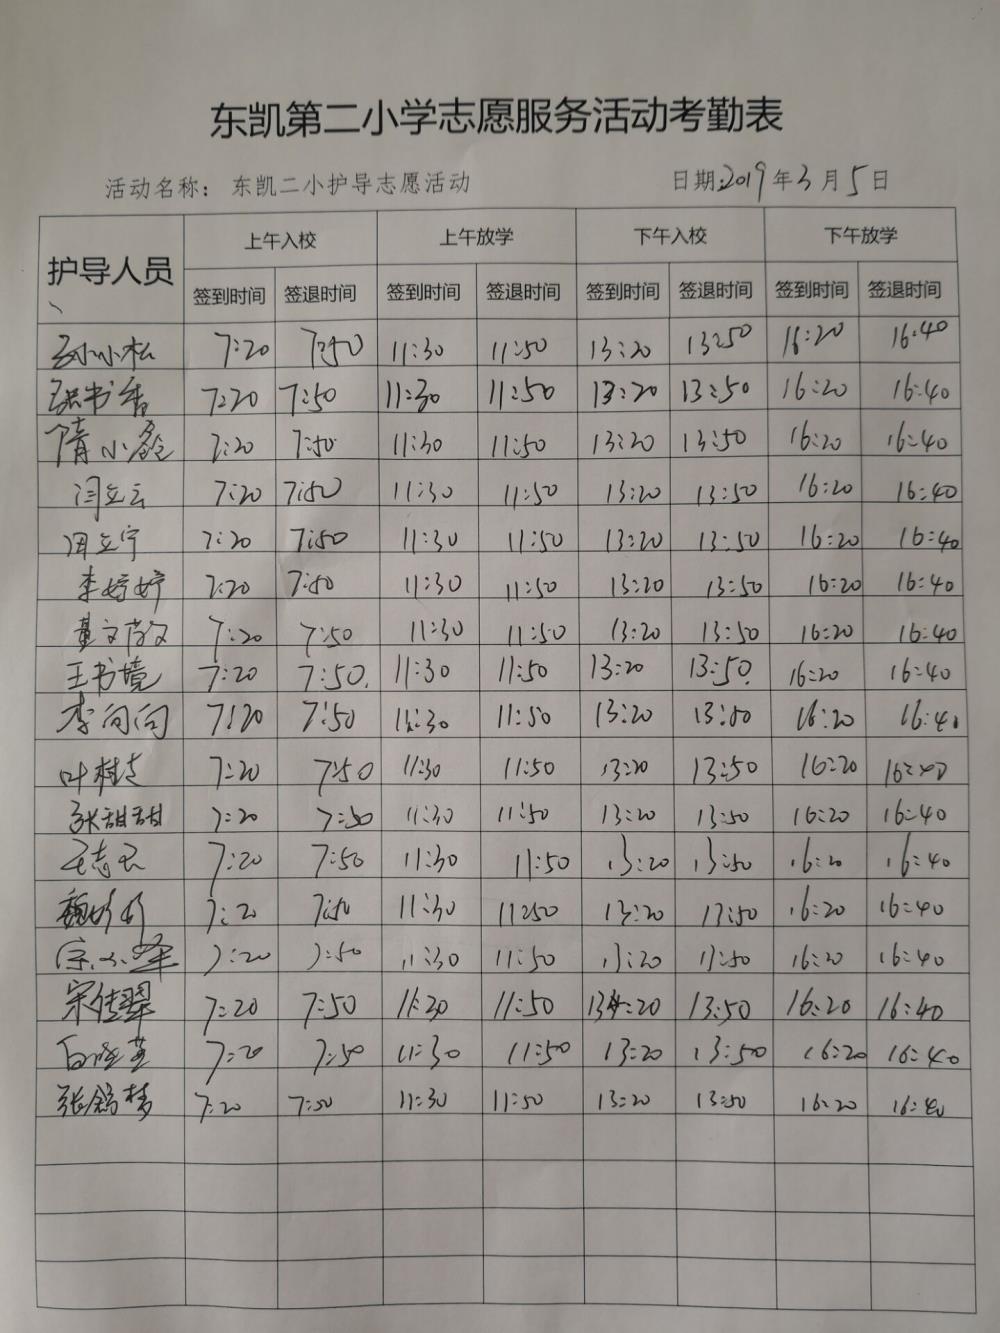 东凯第二小学志愿服务活动考勤表
活动名称：东凯二小护导志愿活动 日期:2019年3月5日
护导人员 上午入校 上午放学 下午入校 下午放学
签到时间 签退时间 签到时间 签退时间 签到时间 签退时间 签到时间 签退时间
孙小松 7:20 7:50 11:30 11:50 13:20 13:50 16:20 16:40
张书香 7:20 7:50 11:30 11:50 13:20 13:50 16:20 16:40
隋小 7:20 7:50 11:30 11:50 13:20 13:50 16:20 16:40
闫立云 7:20 7:50 11:30 11:50 13:20 13:50 16:20 16:40
闫立宇 7:20 7:50 11:30 11:50 13:20 13:50 16:20 16:40
李婷婷 7:20 7:50 11:30 11:50 13:20 13:50 16:20 16:40
董文 7:20 7:50 11:30 11:50 13:20 13:50 16:20 16:40
王书境 7:20 7:50. 11:30 11:50 13:20 13:50. 16:20 16:40
李向向 7:20 7:50 11:30 11:50 13:20 13:50 16:20 16:40
叶树 7:20 7:50 11:30 11:50 13:20 13:50 16:20 16:40
张甜甜 7:20 7:50 11:30 11:50 13:20 13:50 16:20 16:40
王志 7:20 7:50 11:30 11:50 13:20 13:50 16:20 16:40
魏 7:20 7:50 11:30 11:50 13:20 13:50 16:20 16:40
宗小 7:20 7:50 11:30 11:50 13:20 13:50 16:20 16:40
宋佳翠 7:20 7:50 11:30 11:50 13:20 13:50 16:20 16:40
白 7:20 7:50 11:30 11:50 13:20 13:50 16:20 16:40
张 梦 7:20 7:50 11:30 11:50 13:20 13:50 16:20 16:40